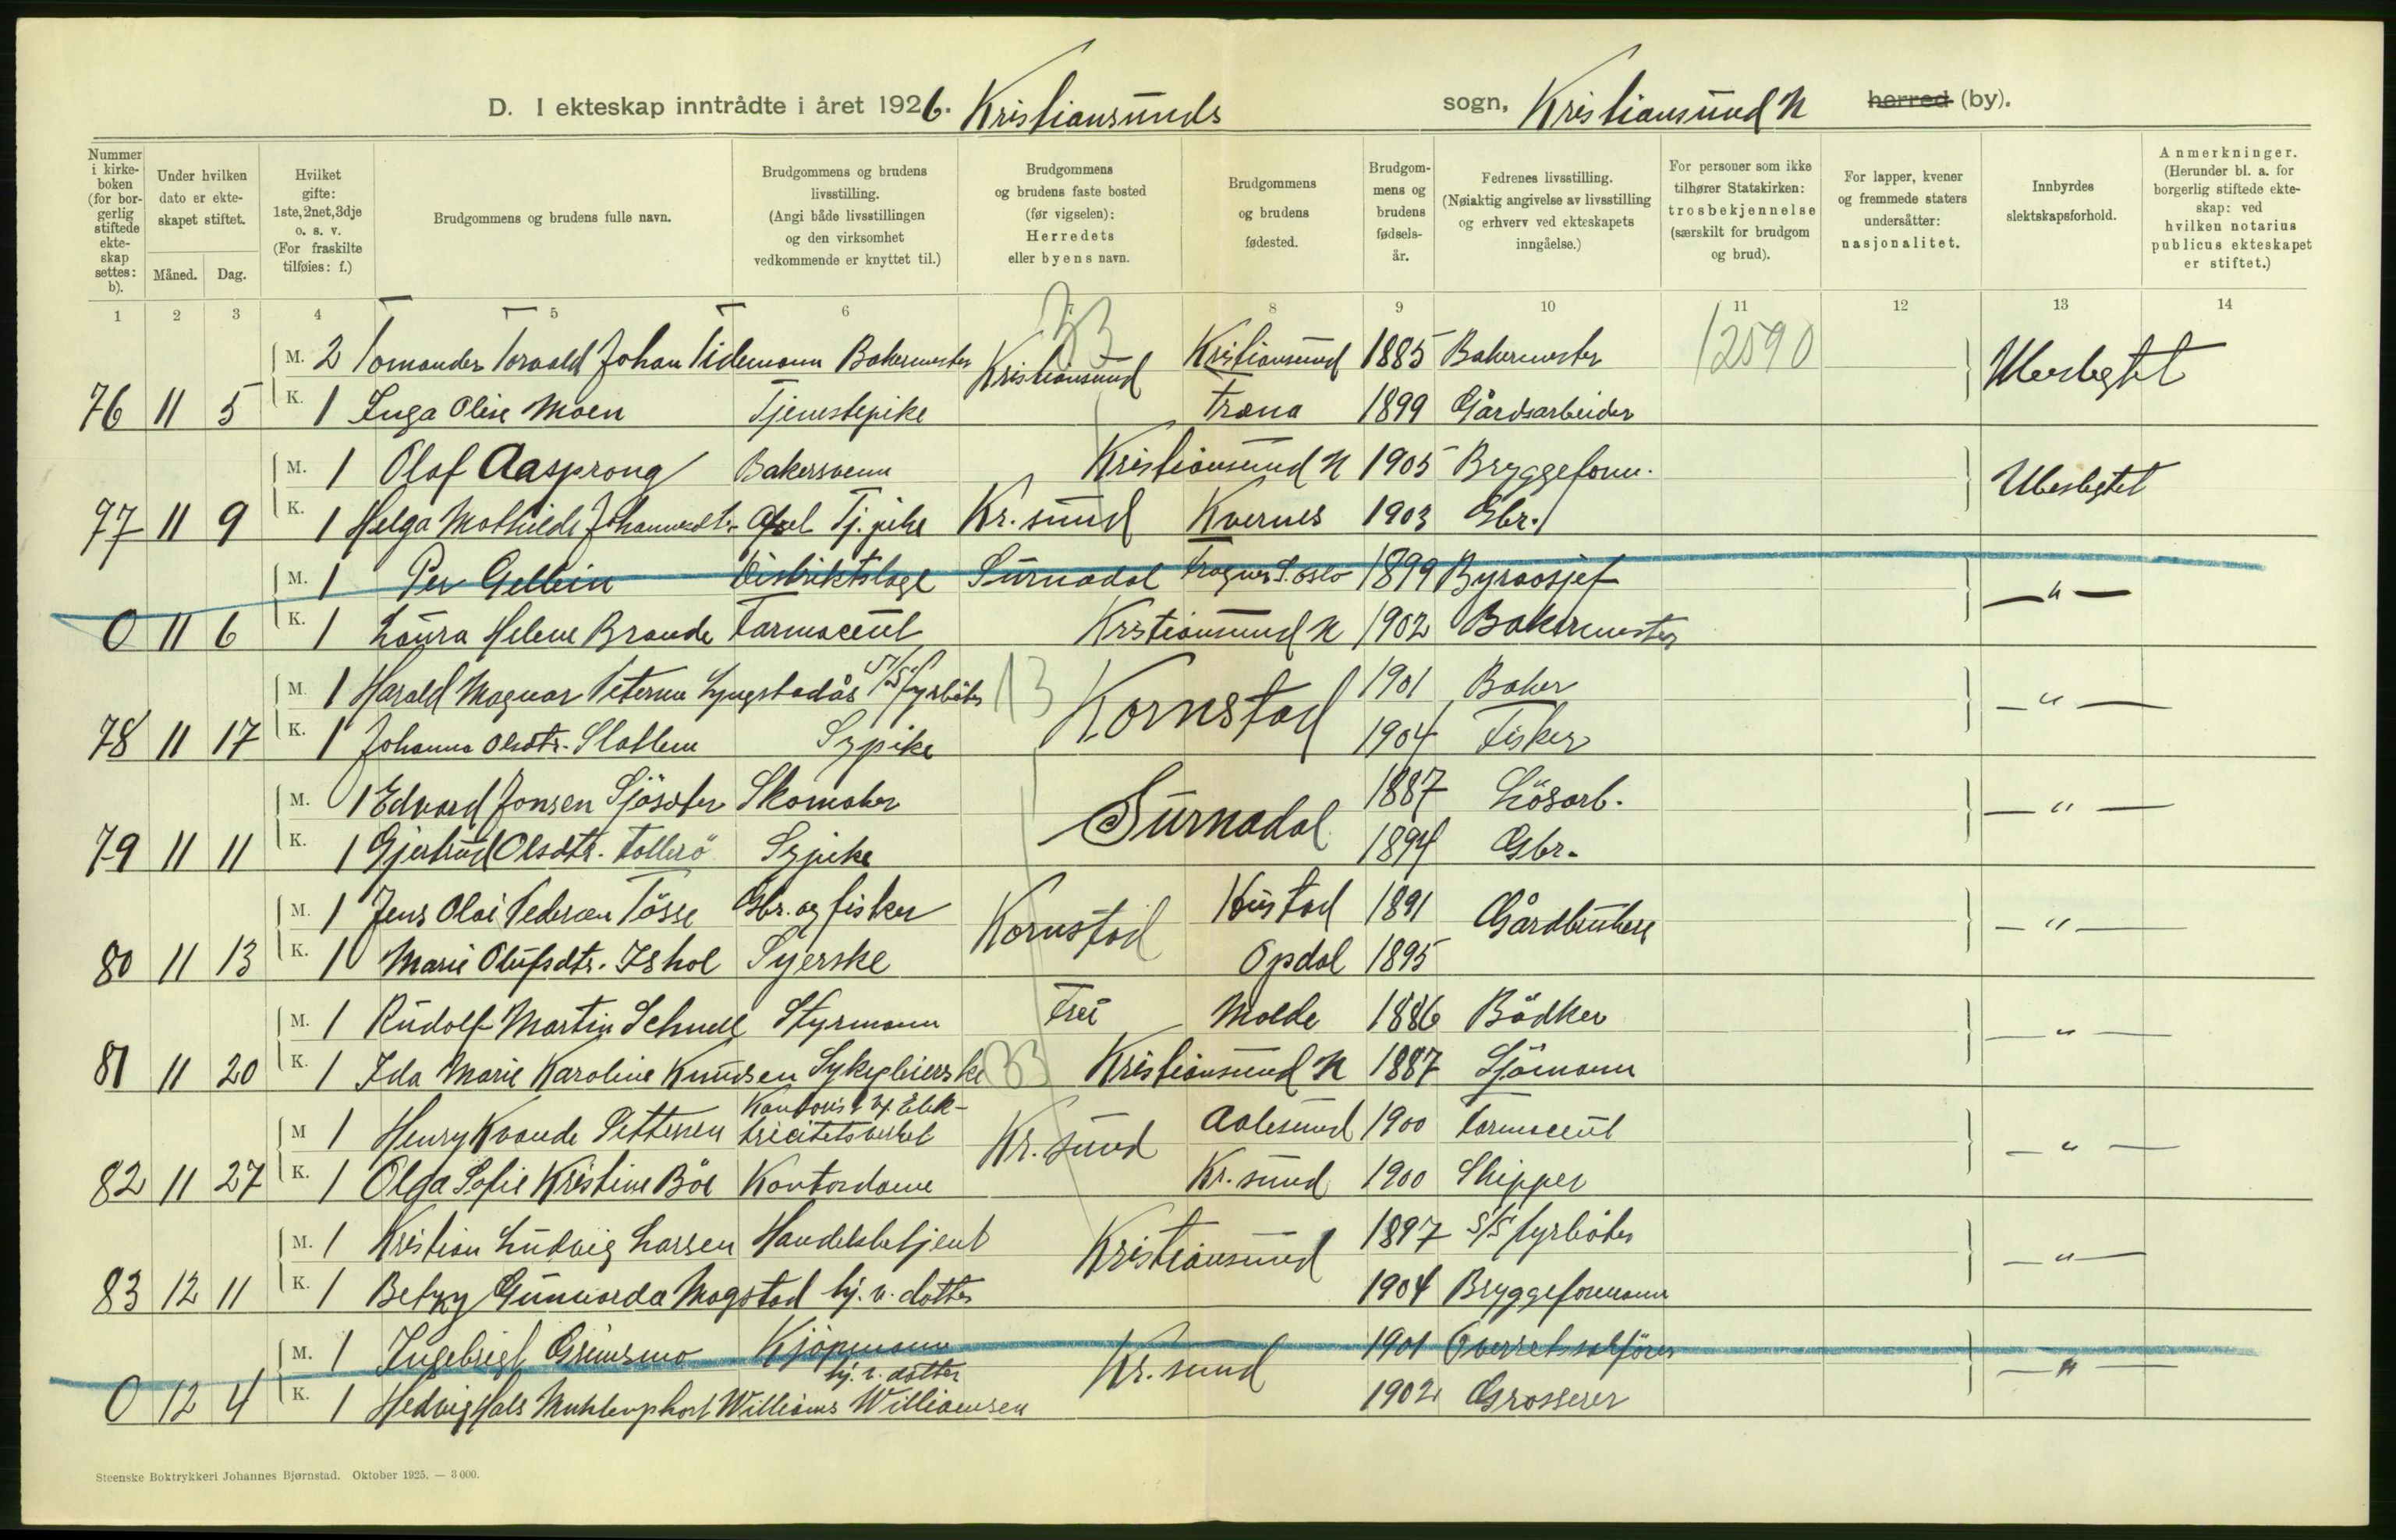 D. I ekteskap inntrådte i året 1926. Kristiansunds sogn, Kristiansund N herred (by).
Nummer i kirkeboken (for borgerlig stiftede ekteskap settes: b).
Under hvilken dato er ekteskapet stiftet.
Måned. Dag.
Hvilket gifte: 1ste, 2net, 3dje o. s. v. (For fraskilte tilføies: f.)
Brudgommens og brudens fulle navn.
Brudgommens og brudens livsstilling. (Angi både livsstillingen og den virksomhet vedkommende er knyttet til.)
Brudgommens og brudens faste bosted (før vigselen): Herredets eller byens navn.
Brudgommens og brudens fødested.
Brudgommens og brudens fødselsår.
Fedrenes livsstilling. (Nøiaktig angivelse av livsstilling og erhverv ved ekteskapets inngåelse.)
For personer som ikke tilhører Statskirken: trosbekjennelse (særskilt for brudgom og brud).
For lapper, kvener og fremmede staters undersåtter: nasjonalitet.
Innbyrdes slektskapsforhold.
Anmerkninger. (Herunder bl. a. for borgerlig stiftede ekteskap: ved hvilken notarius publicus ekteskapet er stiftet.)
1 2 3 4 5 6 8 9 10 11 12 13 14
33 12590
M. 2 Tomander Torvald Johan Tidemann Bakermester Kristiansund Kristiansund 1885 Bakermester Ubeslegtet
76 11 5 K. 1 Inga Oline Moen Tjenestepike Træna 1899 Gårdsarbeider
M. 1 Olaf Aasprong Bakersvenn Kristiansund N 1905 Bryggeform. Ubeslegtet
77 11 9 K. 1 Helga Mathilde Johannesdtr. Tj. pike Kr. sund Kvernes 1903 Gbr.
M. 1 Per Gellein Distriktslæge Surnadal Frogner S. Oslo 1899 Byraasjef — " —
0 11 6 K. 1 Laura Helene Brande Farmaceut Kristiansund N 1902 Bakermester
M. 1 Harald Magnar Petersen Lyngstadås S/S fyrbøter 13 Kornstad 1901 Baker — " —
78 11 17 K. 1 Johanna Olsdtr. Slatlem Sypike 1904 Fisker
M. 1 Edvard Jonsen Sjösæter Skomaker Surnadal 1887 Lösarb. — " —
79 11 11 K. 1 Gjertrud Olsdtr. Tellesö Sypike 1894 Gbr.
M. 1 Jens Olai Pedersen Tösse Gbr. og fisker Kornstad Hustad 1891 Gårdbrukere — " —
80 11 13 K. 1 Marie Olufsdtr. Ishol Syerske Opdal 1895
M. 1 Rudolf Martin Schnell Styrmann Frei Molde 1886 Bödker — " —
81 11 20 K. 1 Ida Marie Karoline Knudsen Sykepleierske 33 Kristiansund N 1887 Sjömann
M 1 Henry Kvande Pettersen Kontorist v. Elektricitetsverket Kr. sund Aalesund 1900 Farmaceut — " —
82 11 27 K. 1 Olga Sofie Kristine Böe Kontordame Kr. sund 1900 Skipper
M. 1 Kristian Ludvig Larsen Handelsbetjent Kristiansund 1897 S/S fyrböter — " —
83 12 11 K. 1 Betzy Gunvarda Magstad hj. v. datter 1904 Bryggeformann
M. 1 Ingebrigt Grimsmo Kjöpmann Kr. sund 1901 Overretssakförer — " —
0 12 4 K. 1 Hedvig Hals Muhlenphort Williams Williamsen hj. v. datter 1902 Grosserer
Steenske Boktrykkeri Johannes Bjørnstad. Oktober 1925. — 3 000.